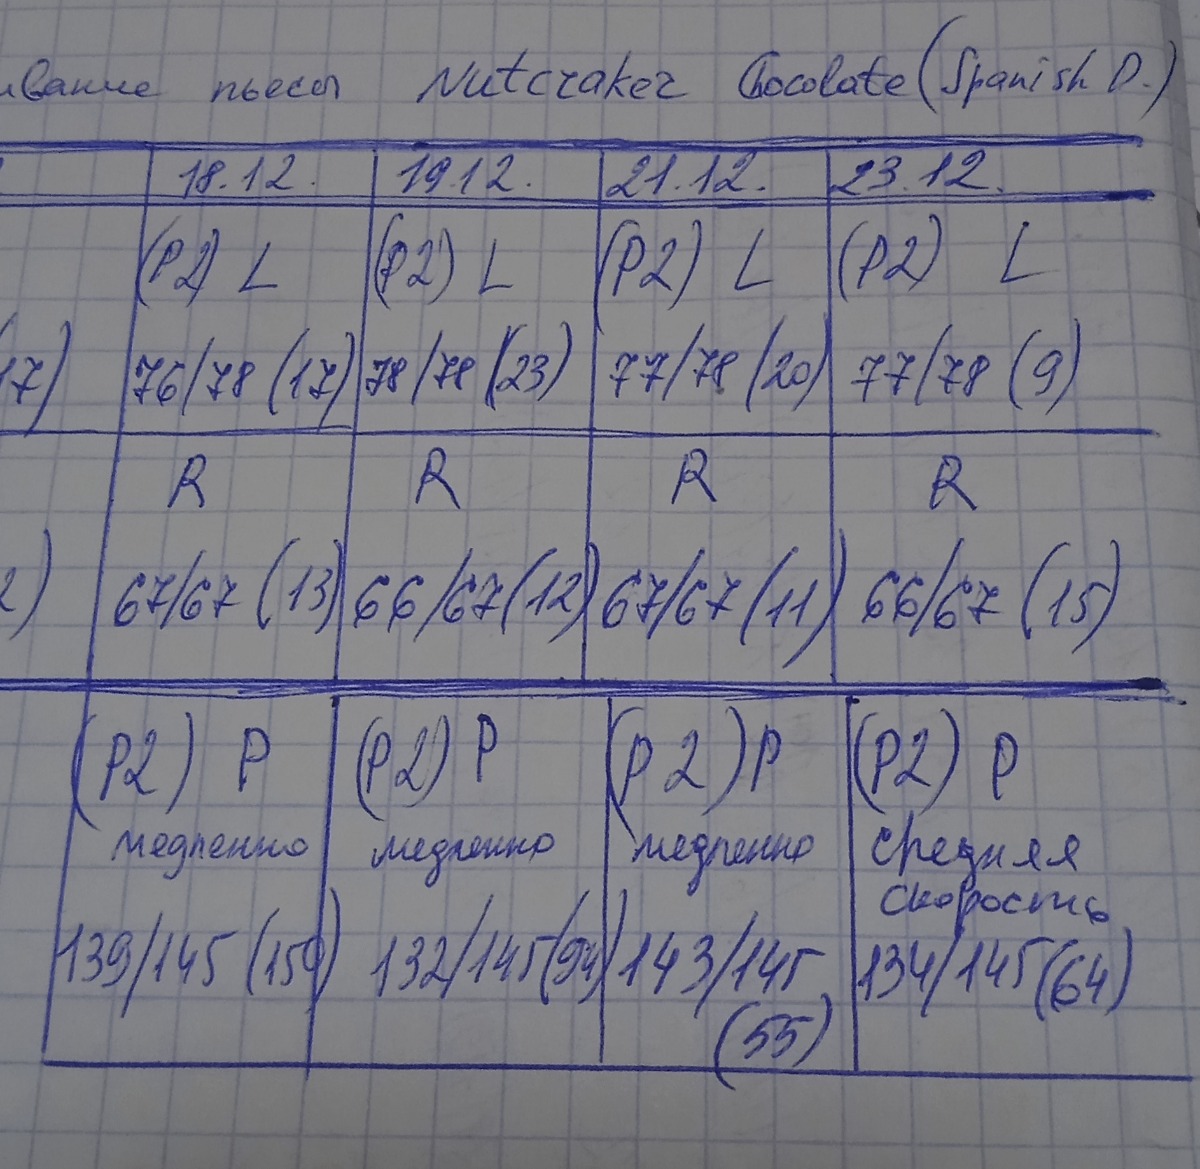 пьесы Nutcraker Chocolate (Spanish D.)
18.12. 19.12. 21.12. 23.12.
(P2) L (P2) L (P2) L (P2) L
17) 76/78 (17) 78/78 (23) 77/78 (20) 77/78 (9)
R R R R
2) 67/67 (13) 66/67 (12) 67/67 (11) 66/67 (15)
(P2) P (P2) P (P2) P (P2) P
медленно медленно медленно средняя
скорость
139/145 132/145 (94) 143/145 134/145 (64)
(55)